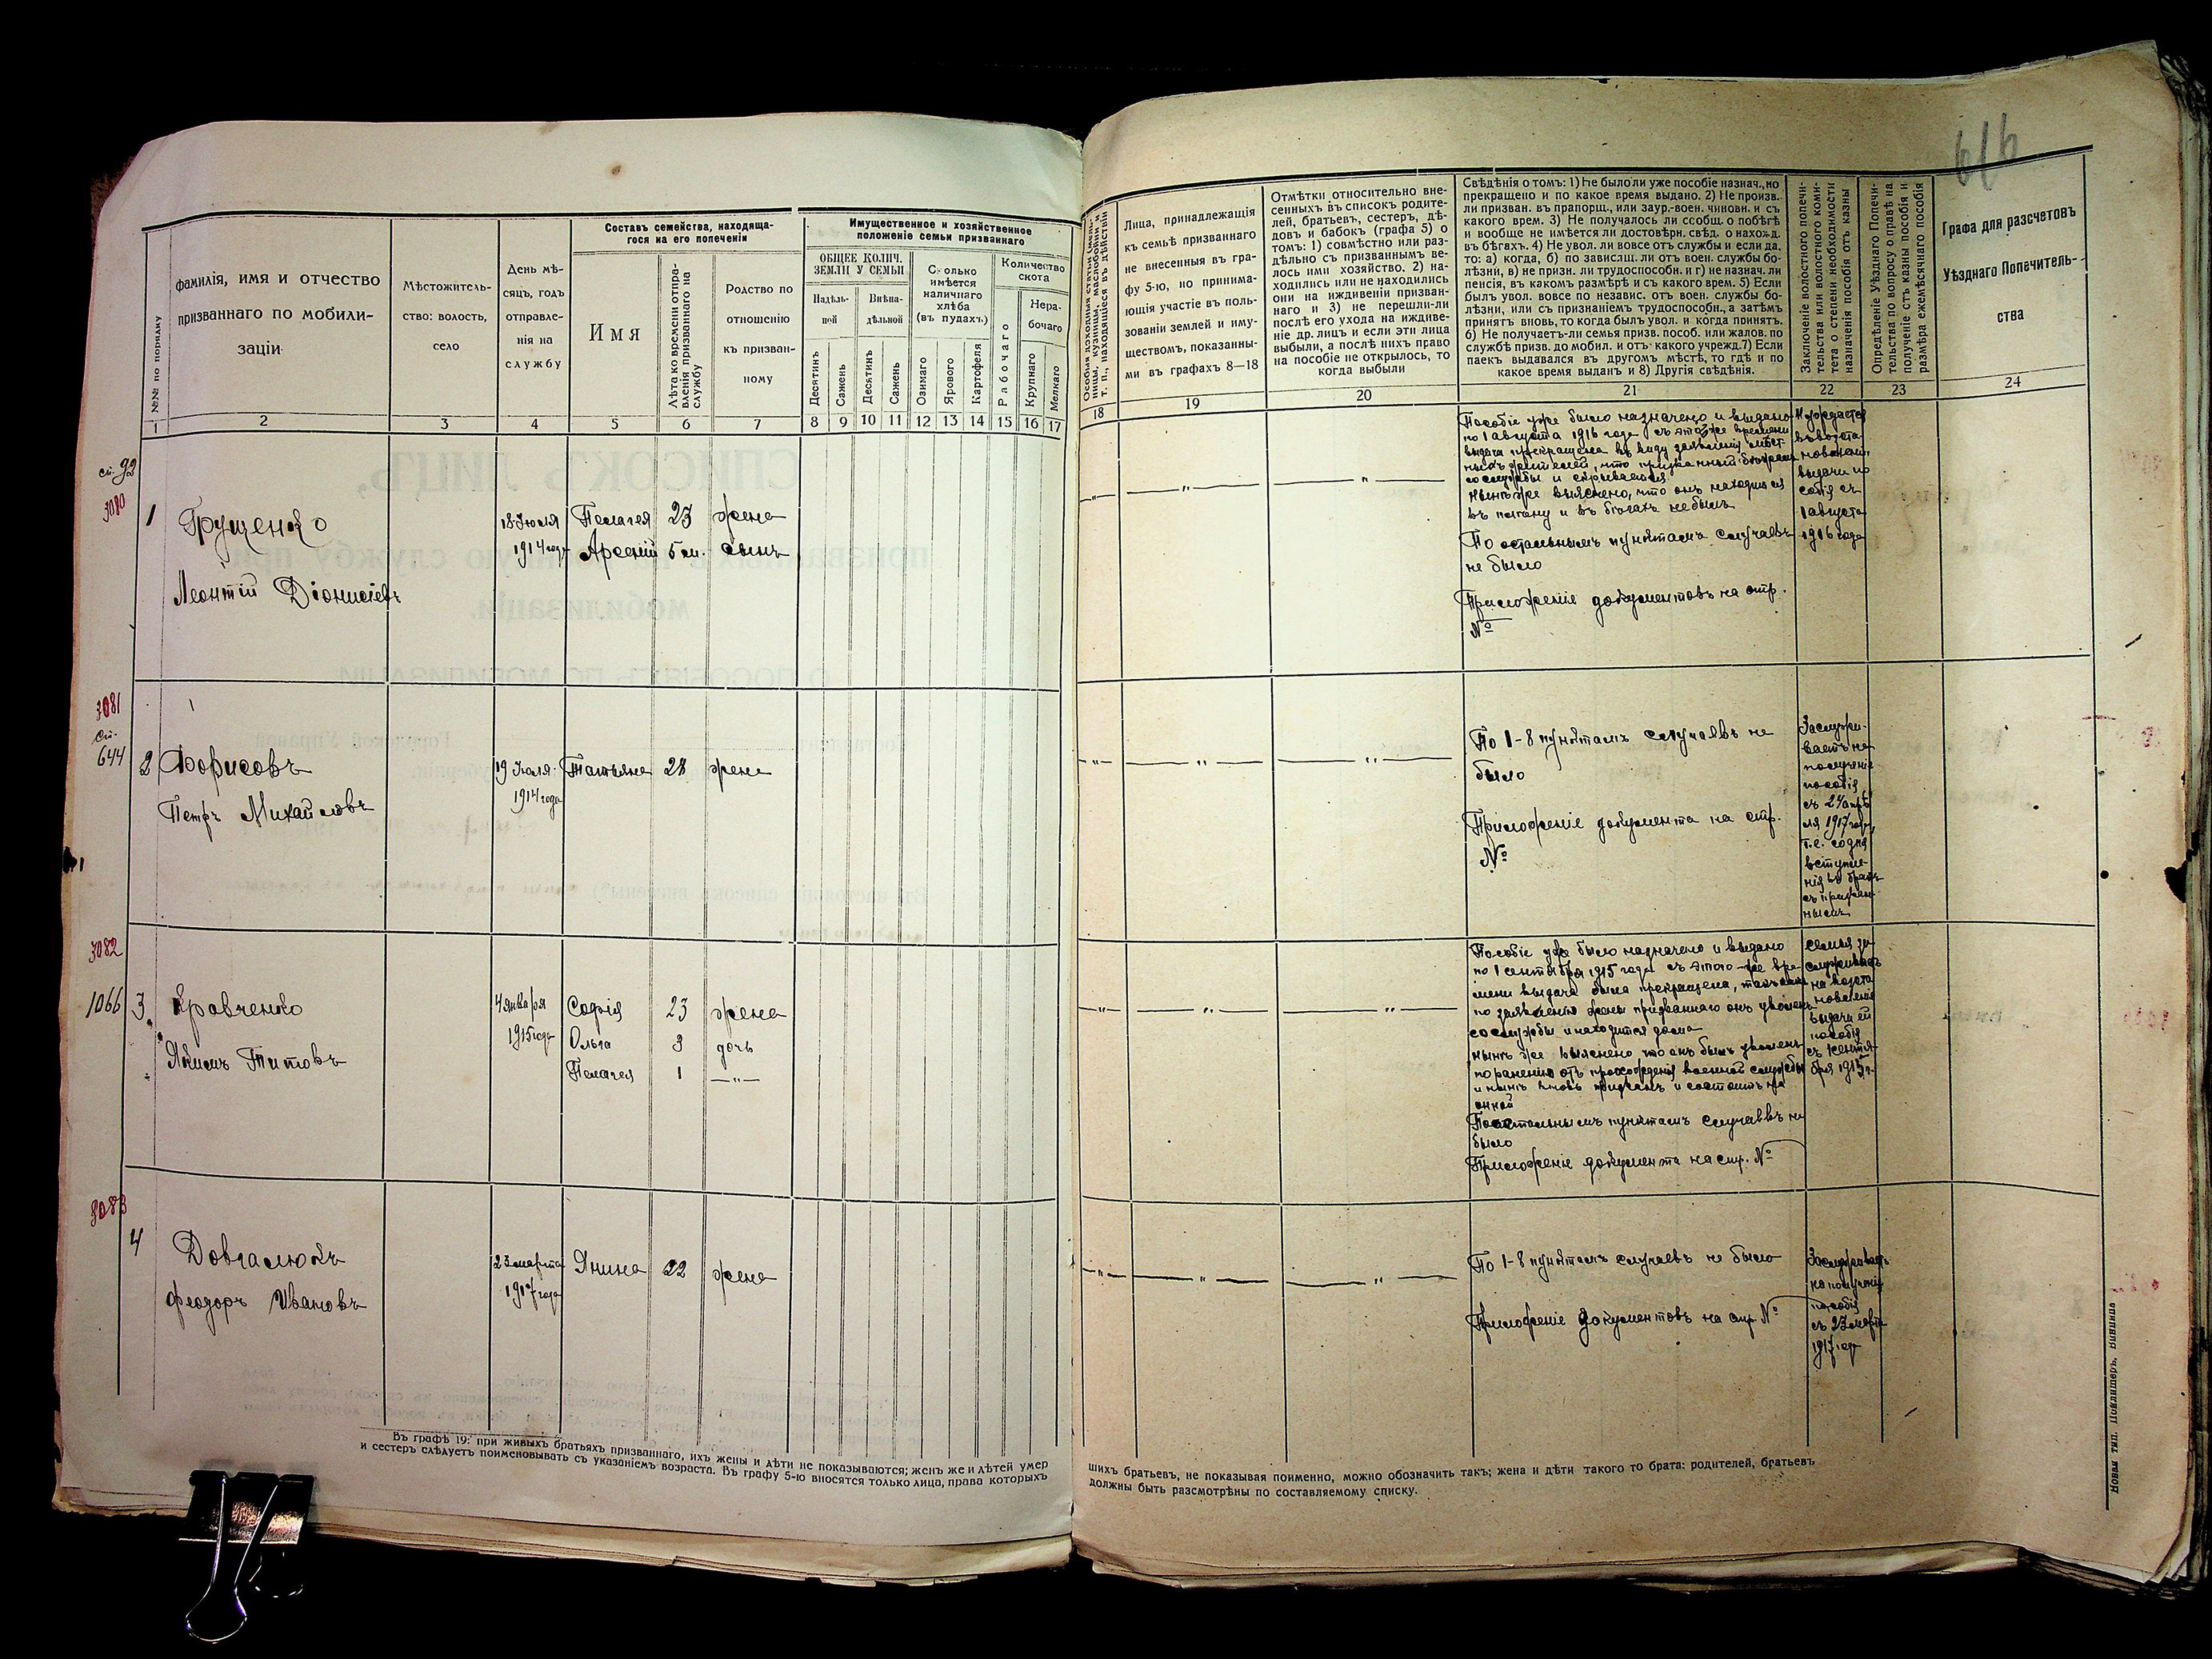 616
№№ по порядку
фамилія, имя и отчество
призваннаго по мобили-
заціи
Мѣстожитель-
ство: волость,
село
День мѣ-
сяцъ, годъ
отправле-
нія на
службу
Составъ семейства, находяща-
гося на его попеченіи
Имя
Лѣта ко времени отпра-
вленія призваннаго на
службу
Родство по
отношенію
къ призван-
ному
Имущественное и хозяйственное
положеніе семьи призваннаго
ОБЩЕЕ КОЛИЧ.
ЗЕМЛИ У СЕМЬИ
Надѣль-
ной
Внѣна-
дѣльной
Десятинъ
Сажень
Десятинъ
Сажень
Сколько
имѣется
наличнаго
хлѣба
(въ пудахъ)
Озимаго
Ярового
Картофеля
Количество
скота
Рабочаго
Нера-
бочаго
Крупнаго
Мелкаго
1 2 3 4 5 6 7 8 9 10 11 12 13 14 15 16 17
Лица, принадлежащія
къ семьѣ призваннаго
не внесенныя въ гра-
фу 5-ю, но принима-
ющія участіе въ поль-
зованіи землей и иму-
ществомъ, показанны-
ми въ графахъ 8—18
Отмѣтки относительно вне-
сенныхъ въ списокъ родите-
лей, братьевъ, сестеръ, дѣ-
довъ и бабокъ (графа 5) о
томъ: 1) совмѣстно или раз-
дѣльно съ призваннымъ ве-
лось ими хозяйство. 2) на-
ходились или не находились
они на иждивеніи призван-
наго и 3) не перешли-ли
послѣ его ухода на иждиве-
ніе др. лицъ и если эти лица
выбыли, а послѣ нихъ право
на пособіе не открылось, то
когда выбыли
Свѣдѣнія о томъ: 1) Не было ли уже пособіе назнач., но
прекращено и по какое время выдано. 2) Не произв.
ли призван. въ прапорщ., или заур.-воен. чиновн. и съ
какого врем. 3) Не получалось ли сообщ. о побѣгѣ
и вообще не имѣется ли достовѣрн. свѣд. о нахожд.
въ бѣгахъ. 4) Не увол. ли вовсе отъ службы и если да,
то: а) когда, б) по зависящ. ли отъ воен. службы бо-
лѣзни, в) не призн. ли трудоспособн. и г) не назнач. ли
пенсія, въ какомъ размѣрѣ и съ какого врем. 5) Если
былъ увол. вовсе по независ. отъ воен. службы бо-
лѣзни, или съ признаніемъ трудоспособн., а затѣмъ
принятъ вновь, то когда былъ увол. и когда принятъ.
6) Не получаетъ-ли семья призв. пособ. или жалов. по
службѣ призв. до мобил. и отъ какого учрежд. 7) Если
паекъ выдавался въ другомъ мѣстѣ, то гдѣ и по
какое время выданъ и 8) Другія свѣдѣнія.
Заключеніе волостного попечи-
тельства или волостного коми-
тета о степени необходимости
назначенія пособія отъ казны
Опредѣленіе Уѣзднаго Попечи-
тельства по вопросу о правѣ на
полученіе отъ казны пособія и
размѣра ежемѣсячнаго пособія
Графа для разсчетовъ
Уѣзднаго Попечитель-
ства
18 19 20 21 22 23 24
сп. 92
3080
1 Грущенко
Леонтій Діонисіевъ
18 Іюля
1914 года
Пелагея 23 жена
Арсеній 5 м. сынъ
Пособіе уже было назначено и выдано
по 1 августа 1916 года съ этого же времени
выдача прекращена въ виду заявленія мѣст-
ныхъ жителей, что призванный
со службы и скрывается
Нынѣ же выяснено, что онъ находится
въ плѣну и въ бѣгахъ не былъ
По остальнымъ пунктамъ случаевъ
не было
Приложеніе документовъ на стр.
№
Нуждается
въ возста-
новленіи
выдачи по
собія съ
1 августа
1916 года
3081
сп.
644
2 Борисовъ
Петръ Михайловъ
19 Іюля
1914 года
Татьяна 28 жена
По 1-8 пунктамъ случаевъ не
было
Приложеніе документа на стр.
№
Заслужи-
ваетъ на
полученіе
пособія
съ 24 апрѣ
ля 1917 года,
т.е. со дня
вступле-
нія въ бракъ
съ призван
нымъ
3082
1066
3 Кравченко
Якимъ Титовъ
4 января
1915 года
Софія 23 жена
Ольга 3 дочь
Пелагея 1 —"—
Пособіе уже было назначено и выдано
по 1 сентября 1915 года съ этого-же вре-
мени выдача была прекращена, такъ какъ
по заявленію жены призваннаго онъ уволенъ
со службы и находится дома
Нынѣ же выяснено что онъ былъ уволенъ
по раненію отъ прохожденія военной службы
и нынѣ вновь призванъ и состоитъ на
оной
По остальнымъ пунктамъ случаевъ не
было
Приложеніе документа на стр. №
Семья за-
служиваетъ
на возста
новленіе
выдачи ей
пособія
съ 1 сентя-
бря 1915 г.
3083
4 Довгалюкъ
Феодоръ Ивановъ
23 марта
1917 года
Янина 22 жена
По 1-8 пунктамъ случаевъ не было
Приложеніе документовъ на стр №
Заслуживаетъ
на полученіе
пособія
съ 23 марта
1917 год
Въ графѣ 19: при живыхъ братьяхъ призваннаго, ихъ жены и дѣти не показываются; женъ же и дѣтей умер
и сестеръ слѣдуетъ поименовывать съ указаніемъ возраста. Въ графу 5-ю вносятся только лица, права которыхъ
шихъ братьевъ, не показывая поименно, можно обозначить такъ; жена и дѣти такого то брата: родителей, братьевъ
должны быть разсмотрѣны по составляемому списку.
Новая тип. Виница